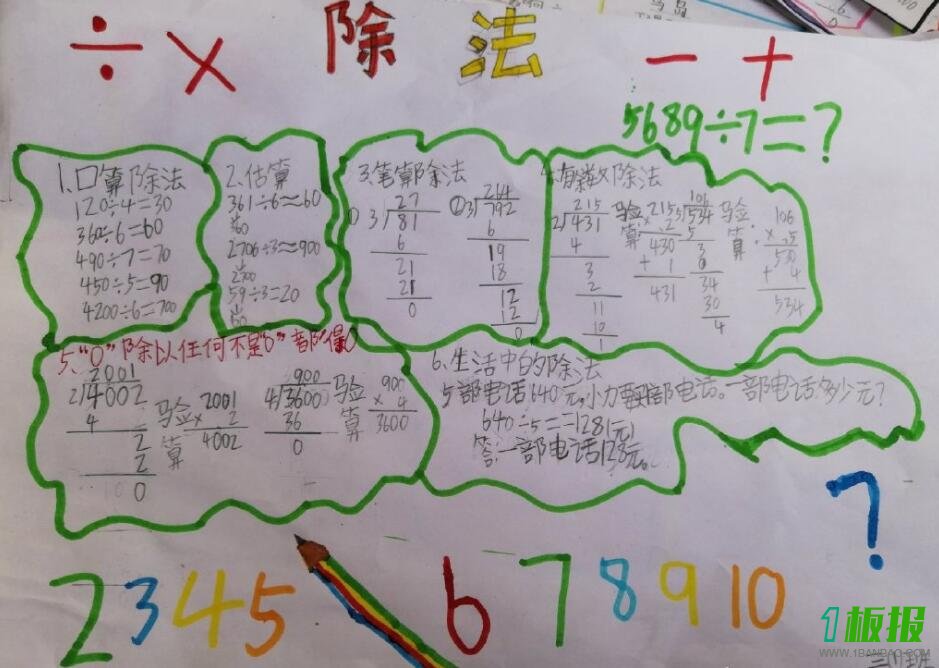 ÷ × 除法 - +
5689÷7=?
1.口算除法
120÷4=30
360÷6=60
490÷7=70
450÷5=90
4200÷6=700
2.估算
361÷6≈60
360
2706÷3≈900
59÷3=20
60
3.笔算除法
27
3 81
6
21
21
0
② 264
3 792
6
19
18
12
12
0
4.有余数除法
215
2 431
4
3
2
11
10
1
验算
215
× 2
430
+ 1
431
106
5 534
5
3
0
34
30
4
验算
106
× 5
530
+ 4
534
5、“0”除以任何不是“0”都得0
2001
2 4002
4
2
2
0
验算
2001
× 2
4002
900
4 3600
36
0
验算
900
× 4
3600
6.生活中的除法
5部电话640元,小力要买部电话。一部电话多少元?
640÷5=128(元)
答:一部电话128元。
?
2 3 4 5 6 7 8 9 10
1板报
WWW.1BANBAO.COM